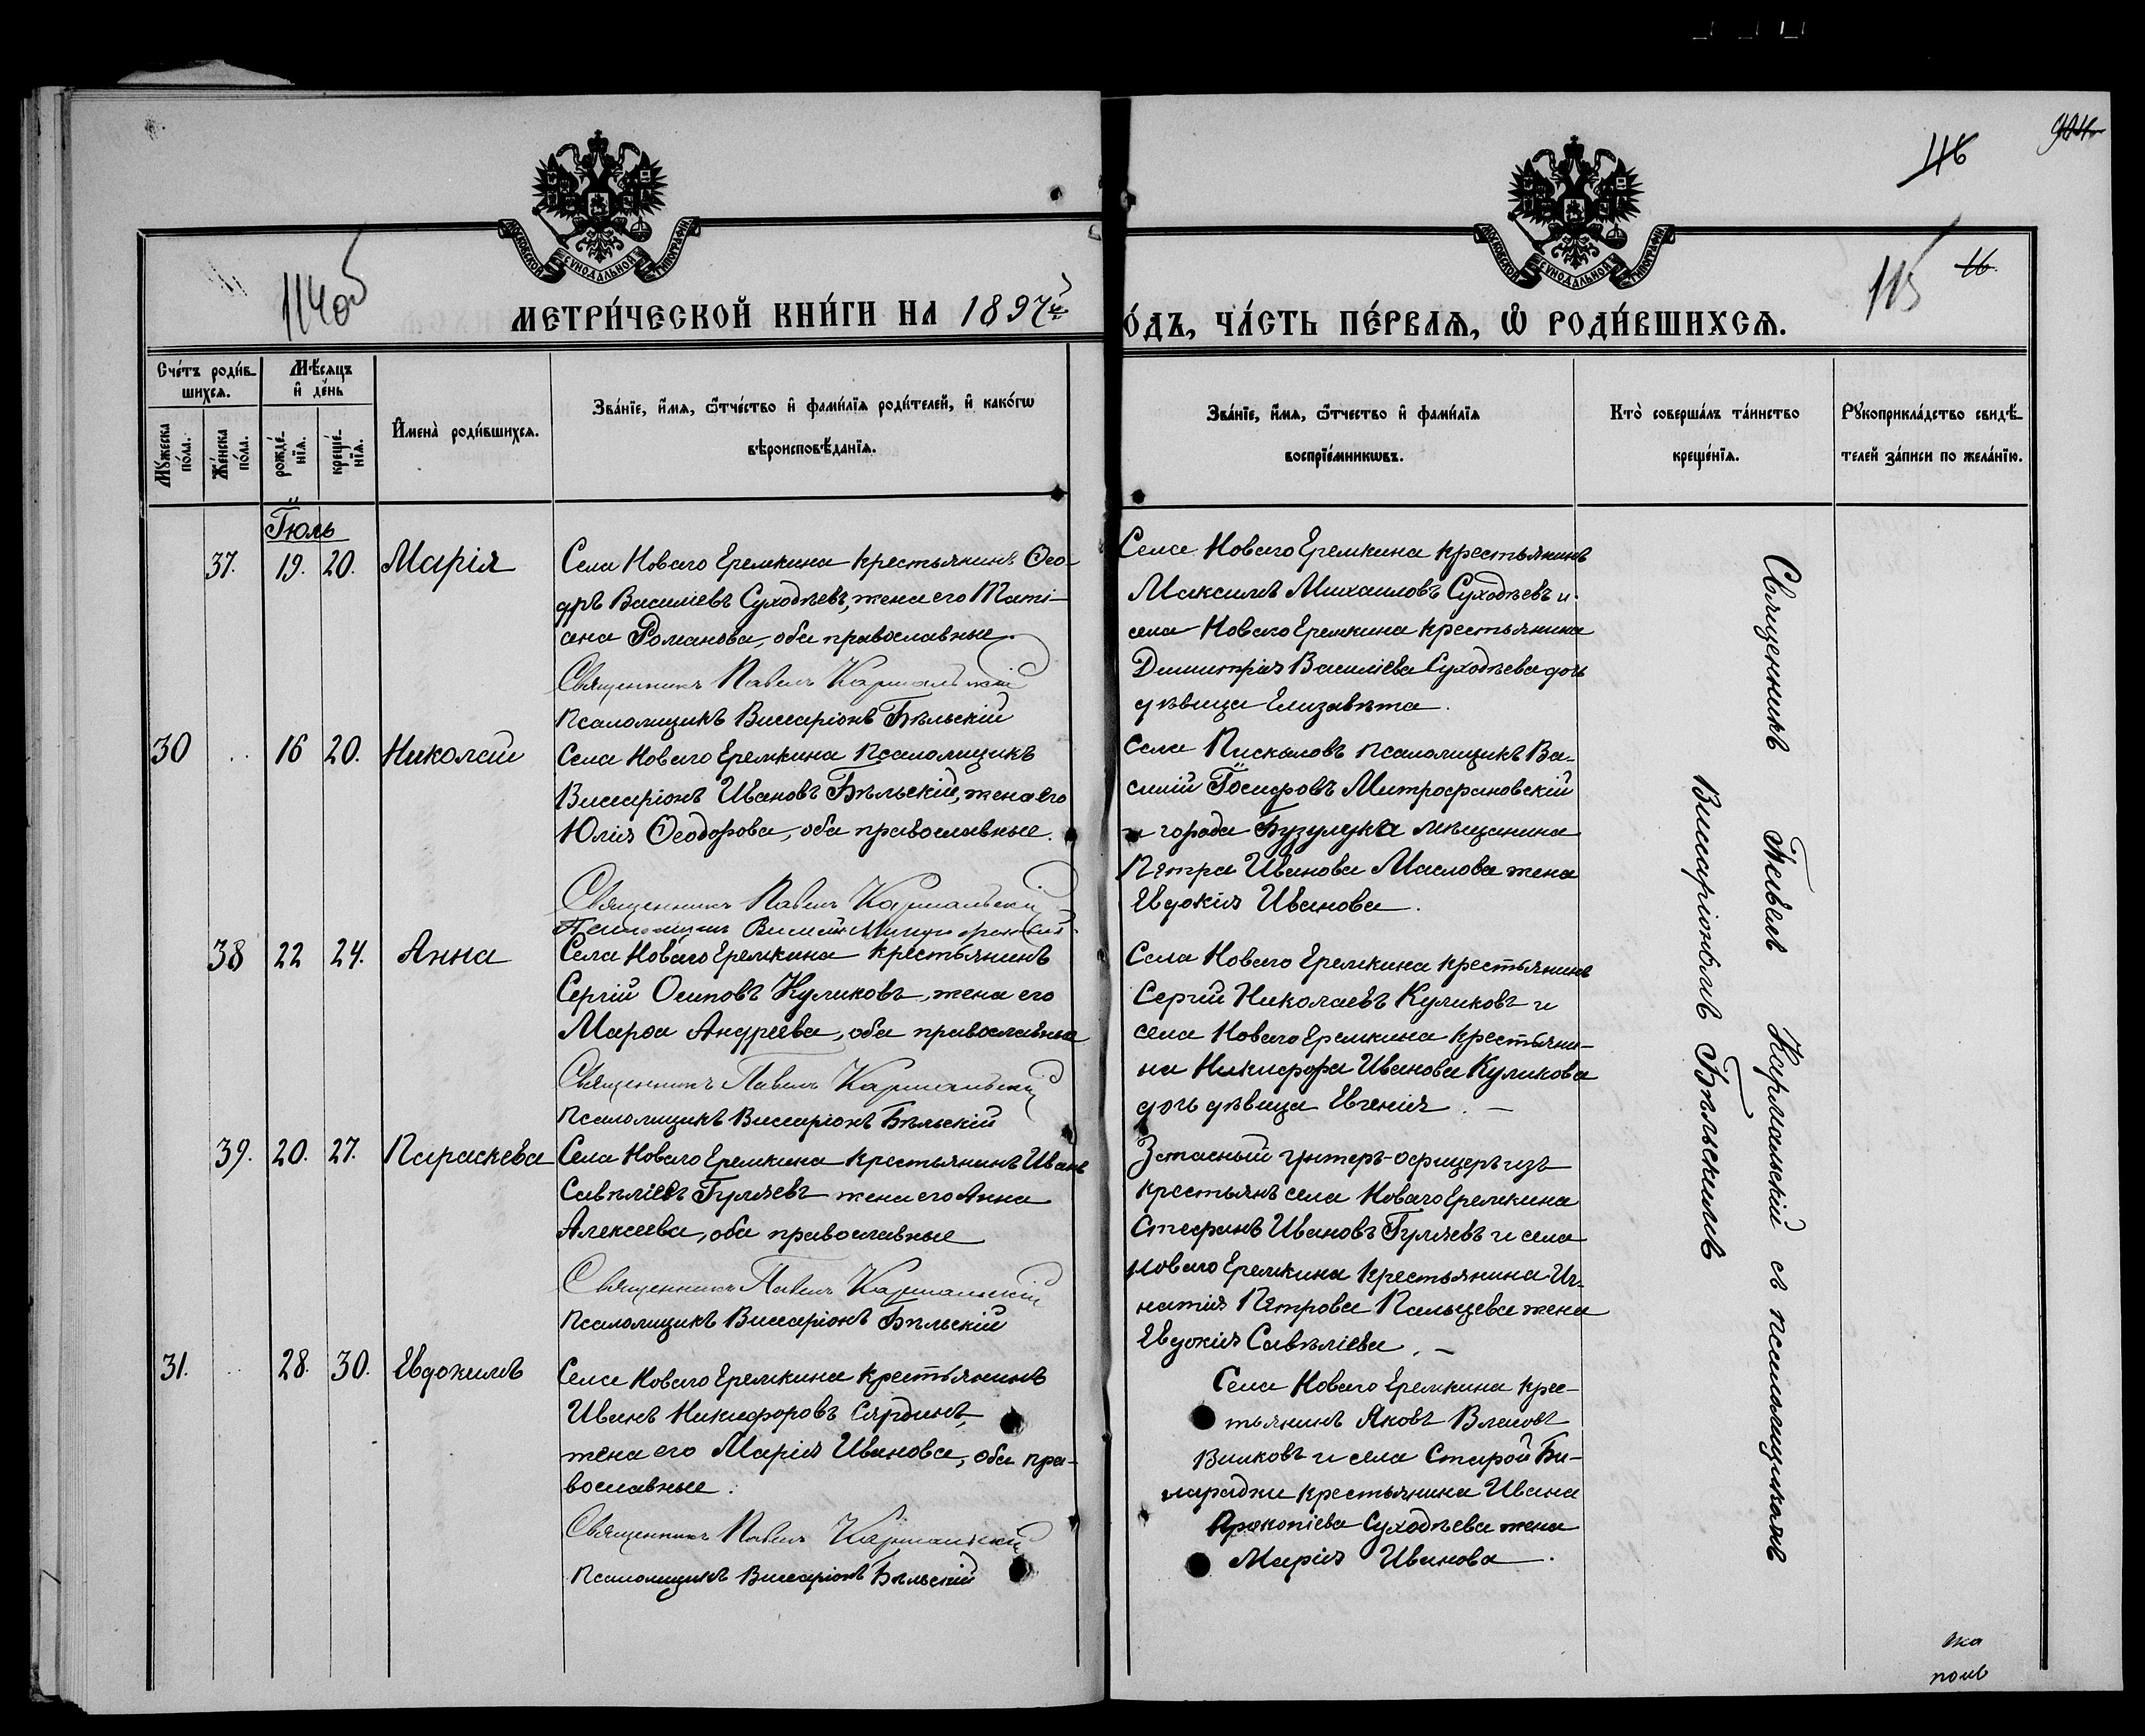 116
114об
115
16.
МЕТРИ́ЧЕСКОЙ КНИ́ГИ НА 1897й
О́ДЪ, ЧА́СТЬ ПЕ́РВАѦ, Ѡ҆ РОДИ́ВШИХСѦ.
МОСКОВСКОЙ СѴНОДАЛЬНОЙ ТИПОГРАФІИ
МОСКОВСКОЙ СѴНОДАЛЬНОЙ ТИПОГРАФІИ
Сче́тъ роди́в-
шихсѧ.
Мѣ́сѧцъ
и҆ де́нь
Мꙋ́жеска
по́ла.
Же́нска
по́ла.
рожде́-
нїѧ.
креще́-
нїѧ.
И҆мена̀ роди́вшихсѧ.
Зва́нїе, и҆́мѧ, ѻ҆́тчество и҆ фами́лїѧ роди́телей, и҆ како́гѡ
вѣроисповѣ́данїѧ.
Зва́нїе, и҆́мѧ, ѻ҆́тчество и҆ фами́лїѧ
воспрїе́мникѡвъ.
Кто̀ соверша́лъ та́инство
креще́нїѧ.
Рꙋкоприкла́дство свидѣ́-
телей за́писи по жела́нїю.
Іюль
37. 19. 20. Марія
Села Новаго Еремкина крестьянинъ Ѳео-
дръ Василіевъ Суходѣевъ, жена его Таті-
ана Романова, оба православные.
Священникъ Павелъ Кармальскій
Псаломщикъ Виссаріонъ Бѣльскій
Села Новаго Еремкина крестьянинъ
Максимъ Михаиловъ Суходѣевъ и
села Новаго Еремкина крестьянина
Димитрія Василіева Суходѣева дочь
дѣвица Елизавѣта.
30 16 20. Николай
Села Новаго Еремкина псаломщикъ
Виссаріонъ Ивановъ Бѣльскій, жена его
Юлія Ѳеодорова, оба православные.
Священникъ Павелъ Кармальскій
Псаломщикъ Василій Митрофановскій
Села Пискаловъ псаломщикъ Ва-
силій Іосифовъ Митрофановскій
и города Бузулука мѣщанина
Петра Иванова Маслова жена
Евдокія Иванова.
38 22 24. Анна
Села Новаго Еремкина крестьянинъ
Сергій Осиповъ Куликовъ, жена его
Марѳа Андреева, оба православные
Священникъ Павелъ Кармальскій
Псаломщикъ Виссаріонъ Бѣльскій
Села Новаго Еремкина крестьянинъ
Сергій Николаевъ Куликовъ и
села Новаго Еремкина крестьяни-
на Никифора Иванова Куликова
дочь дѣвица Евгенія. —
39. 20. 27. Параскева
Села Новаго Еремкина крестьянинъ Иванъ
Савѣліевъ Гуляевъ жена его Анна
Алексеева, оба православные
Священникъ Павелъ Кармальскій
Псаломщикъ Виссаріонъ Бѣльскій
Запасный унтеръ-офицеръ изъ
крестьянъ села Новаго Еремкина
Стефанъ Ивановъ Гуляевъ и села
Новаго Еремкина крестьянина Иг-
натія Петрова Пальцева жена
Евдокія Савѣліева. —
31. 28. 30. Евдокимъ
Села Новаго Еремкина крестьянинъ
Иванъ Никифоровъ Сярдинъ,
жена его Марія Иванова, оба пра-
вославные.
Священникъ Павелъ Кармальскій
Псаломщикъ Виссаріонъ Бѣльскій
Села Новаго Еремкина крес-
тьянинъ Яковъ Власовъ
Волковъ и села Старой Би-
нарадки крестьянина Ивана
Прокопіева Суходѣева жена
Марія Иванова.
Священникъ Павелъ Кармальскій съ псаломщикомъ
Виссаріономъ Бѣльскимъ